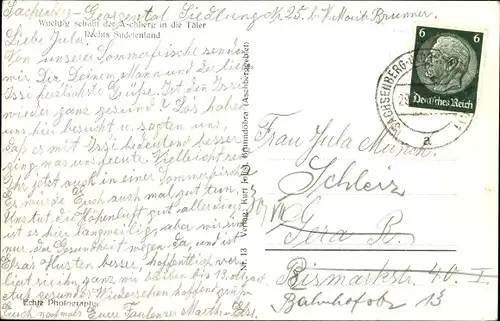 Sachsenberg-Georgental Siedlung Nr. 25. b. H. Moritz Brunner.
Wuchtig schaut der Aschberg in die Täler
Rechts Sudetenland
Liebe Jula!
Von unserer Sommerfrische senden
wir Dir Deinem Mann und der lieben
Issi herzlichste Grüße. Ist den Issi
wieder ganz gesund? Das haben
uns hier besucht u. sagten uns,
daß es mit Issi bedeutend besser
ging, was uns freute. Vielleicht seid
Ihr jetzt auch in einer Sommerfrische
Es würde Euch auch mal gut tun,
Uns tut die Höhenluft gut allerdings
ist es hier langweilig, aber wir sind
nur der Gesundheit wegen da, und ist
Elsas Husten besser, hoffentlich
wir bleiben bis 13. d.
Wiedersehen hoffend grüßen
Euch nochmals Eure Paulenzer Martha u. Else.
Echte Photographie
Nr. 13 Verlag: Kurt Jobst, Brunndöbra (Aschberggebiet)
6 6
Deutsches Reich
SACHSENBERG-
a
Frau Jula Münch
Schleiz
Gera R.
Bismarckstr. 40. I
Bahnhofstr. 13